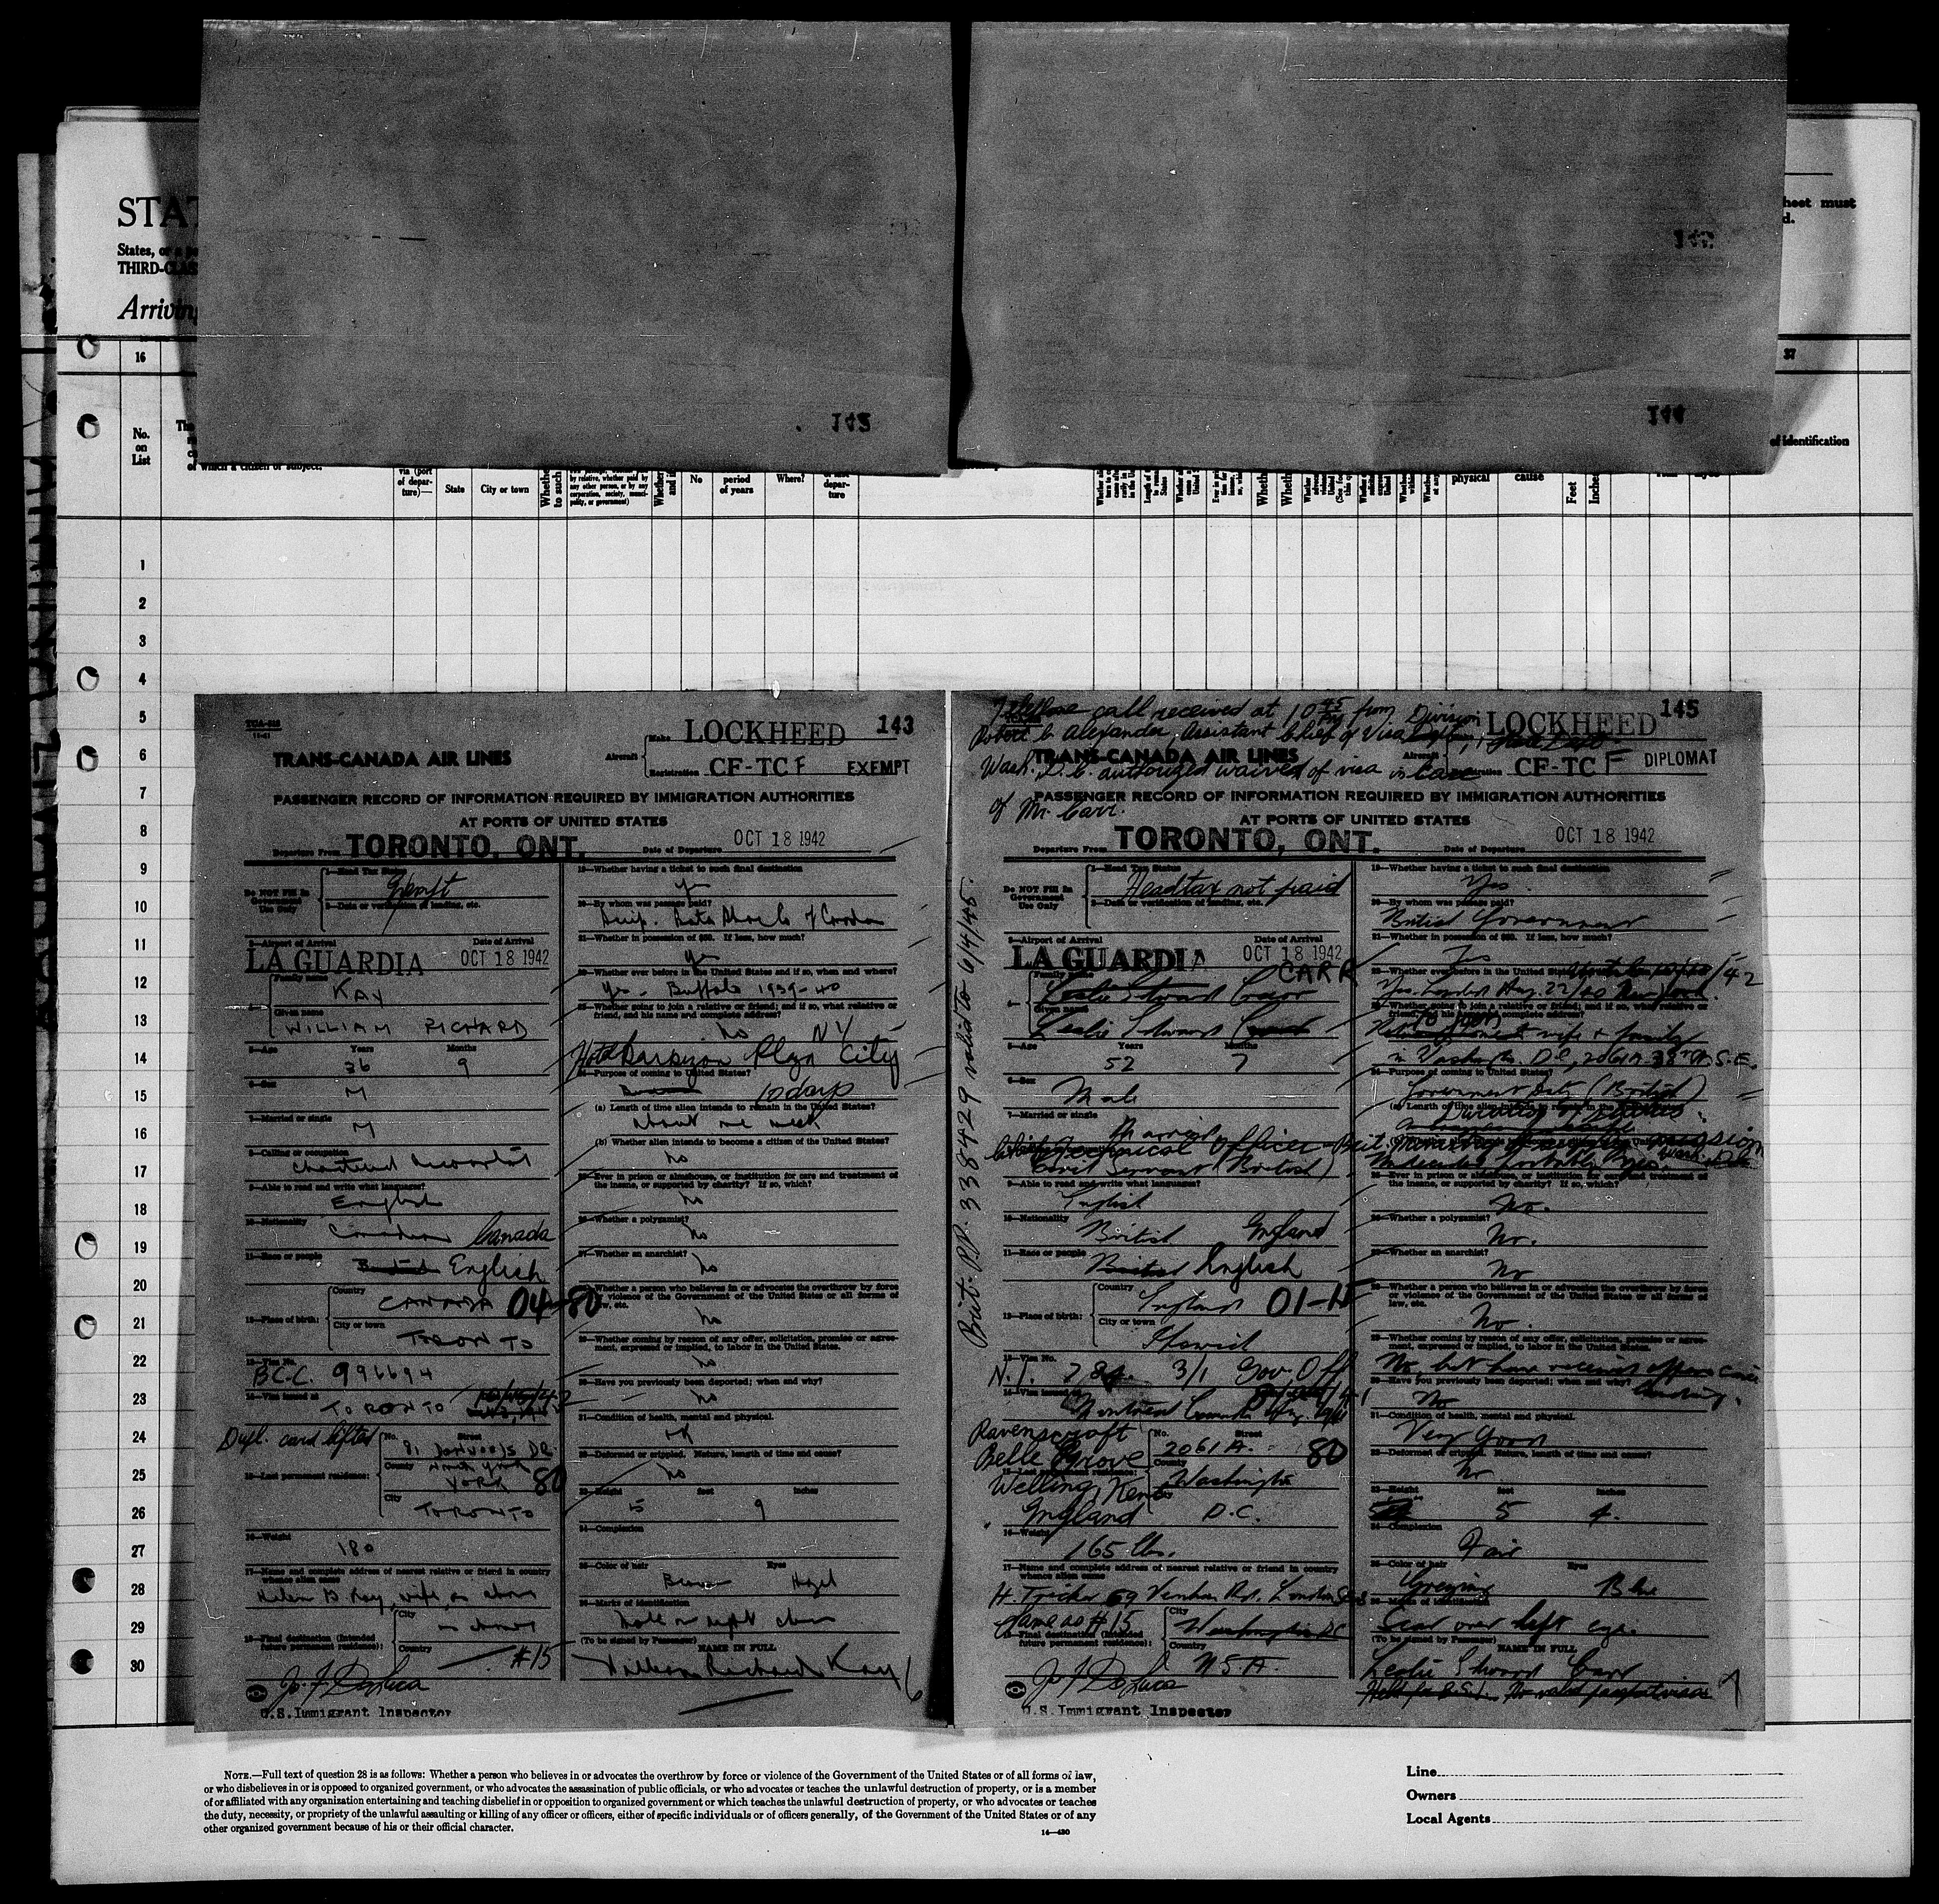 STAT
States, or a
THIRD-CLAS
Arriving
heet must
d.
142
144
16
37
No.
on
List
of which a citizen or subject.
via (port
of depar-
ture)—
State
City or town
Whether
to such
by relative, whether paid by
any other person, or by any
corporation, society, munici-
pality, or government)
No
period
of years
Where?
depar-
ture
physical
cause
Feet
Inches
of identification
1
2
3
4
5
6
7
8
9
10
11
12
13
14
15
16
17
18
19
20
21
22
23
24
25
26
27
28
29
30
143
Make LOCKHEED
TRANS-CANADA AIR LINES
Aircraft
Registration CF-TCF EXEMPT
PASSENGER RECORD OF INFORMATION REQUIRED BY IMMIGRATION AUTHORITIES
AT PORTS OF UNITED STATES
Departure From TORONTO, ONT. Date of Departure OCT 18 1942
Do NOT Fill In
Government
Use Only
1—Head Tax Status
2—Date or verification of landing, etc.
3—Airport of Arrival Date of Arrival
LA GUARDIA OCT 18 1942
4— Family name
KAY
Given name
WILLIAM RICHARD
5—Age Years Months
36 9
6—Sex
M
7—Married or single
M
8—Calling or occupation
Chartered Accountant
9—Able to read and write what languages?
English
10—Nationality
Canadian Canada
11—Race or people
English
12—Place of birth: Country
CANADA 04-80
City or town
TORONTO
13—Visa No.
B.C.C. 996694
14—Visa issued at
TORONTO
Dupl. card lifted
15—Last permanent residence: No. Street
81
County
York 80
City
TORONTO
16—Weight
180
17—Name and complete address of nearest relative or friend in country
whence alien came
Helen B Kay, wife, as above
18—Final destination (Intended
future permanent residence): City
as above
Country
#15
U.S. Immigrant Inspector
19—Whether having a ticket to such final destination
yes
20—By whom was passage paid?
21—Whether in possession of $50. If less, how much?
yes
22—Whether ever before in the United States and if so, when and where?
Yes - Buffalo 1939-40
23—Whether going to join a relative or friend; and if so, what relative or
friend, and his name and complete address?
No
Hotel Barbizon Plaza NY City
24—Purpose of coming to United States?
10 days
(a) Length of time alien intends to remain in the United States?
about one week
(b) Whether alien intends to become a citizen of the United States?
No
25—Ever in prison or almshouse, or institution for care and treatment of
the insane, or supported by charity? If so, which?
No
26—Whether a polygamist?
No
27—Whether an anarchist?
No
28—Whether a person who believes in or advocates the overthrow by force
or violence of the Government of the United States or all forms of
law, etc.
No
29—Whether coming by reason of any offer, solicitation, promise or agree-
ment, expressed or implied, to labor in the United States.
No
30—Have you previously been deported; when and why?
No
31—Condition of health, mental and physical.
32—Deformed or crippled. Nature, length of time and cause?
No
33—Height feet inches
5 9
34—Complexion
35—Color of hair Eyes
Brown Hazel
36—Marks of identification
(To be signed by Passenger) NAME IN FULL
William Richard Kay
6
145
Telephone call received at 10 45 PM from
Robert C. Alexander, Assistant Chief of Visa Division
State Dept
Wash. D.C. authorized waiver of visa in case
of Mr. Carr.
LOCKHEED
TRANS-CANADA AIR LINES
Aircraft
Registration CF-TCF DIPLOMAT
PASSENGER RECORD OF INFORMATION REQUIRED BY IMMIGRATION AUTHORITIES
AT PORTS OF UNITED STATES
Departure From TORONTO, ONT. Date of Departure OCT 18 1942
Brit. P.P. 338429 valid to 6/4/45.
Do NOT Fill In
Government
Use Only
1—Head Tax Status
Head tax not paid
2—Date or verification of landing, etc.
3—Airport of Arrival Date of Arrival
LA GUARDIA OCT 18 1942
4— Family name
CARR
Given name
Leslie Edward
5—Age Years Months
52 7
6—Sex
Male
7—Married or single
Married
8—Calling or occupation
Technical Officer
Civil Servant (British)
9—Able to read and write what languages?
English
10—Nationality
British England
11—Race or people
English
12—Place of birth: Country
England 01-15
City or town
13—Visa No.
3/1 Gov. Off.
14—Visa issued at
Ravenscroft
Belle Grove
Welling, Kent
England
15—Last permanent residence: No. Street
2061A. 80
County
Washington
D.C.
16—Weight
165 lbs.
17—Name and complete address of nearest relative or friend in country
whence alien came
Same as #15
18—Final destination (Intended
future permanent residence): City
Washington DC
Country
U.S.A.
U.S. Immigrant Inspector
19—Whether having a ticket to such final destination
Yes
20—By whom was passage paid?
British Government
21—Whether in possession of $50. If less, how much?
Yes
22—Whether ever before in the United States
23—Whether going to join a relative or friend; and if so, what relative or
friend, and his name and complete address?
wife & family
24—Purpose of coming to United States?
Government duty (British)
(a) Length of time alien intends to remain in the United States?
25—Ever in prison or almshouse, or institution for care and treatment of
the insane, or supported by charity? If so, which?
No.
26—Whether a polygamist?
No.
27—Whether an anarchist?
No
28—Whether a person who believes in or advocates the overthrow by force
or violence of the Government of the United States or all forms of
law, etc.
No.
29—Whether coming by reason of any offer, solicitation, promise or agree-
ment, expressed or implied, to labor in the United States.
30—Have you previously been deported; when and why?
No
31—Condition of health, mental and physical.
Very Good
32—Deformed or crippled. Nature, length of time and cause?
No
33—Height feet inches
5 4.
34—Complexion
Fair
35—Color of hair Eyes
Greying Blue
36—Marks of identification
Scar over left eye.
(To be signed by Passenger) NAME IN FULL
Leslie Edward Carr
7
NOTE.—Full text of question 28 is as follows: Whether a person who believes in or advocates the overthrow by force or violence of the Government of the United States or of all forms of law,
or who disbelieves in or is opposed to organized government, or who advocates the assassination of public officials, or who advocates or teaches the unlawful destruction of property, or is a member
of or affiliated with any organization entertaining and teaching disbelief in or opposition to organized government or which teaches the unlawful destruction of property, or who advocates or teaches
the duty, necessity, or propriety of the unlawful assaulting or killing of any officer or officers, either of specific individuals or of officers generally, of the Government of the United States or of any
other organized government because of his or their official character.
14—430
Line
Owners
Local Agents